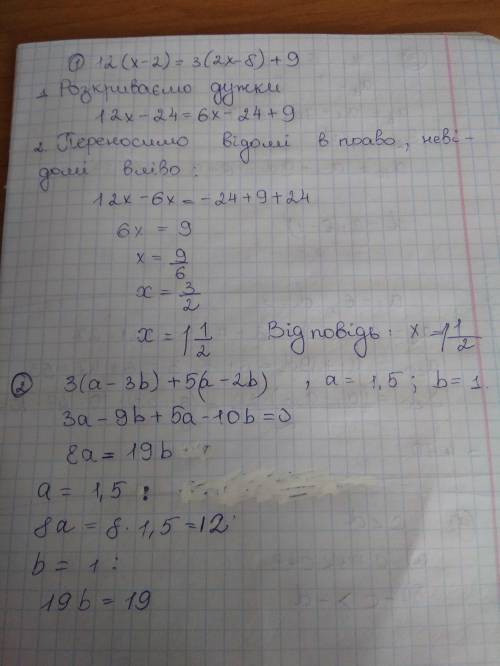 ① 12(x-2) = 3(2x-8)+9
1. Розкриваємо дужки
12x-24=6x-24+9
2. Переносимо відомі в право, неві-
домі вліво:
12x-6x=-24+9+24
6x = 9
x = 9/6
x = 3/2
x = 1 1/2 Відповідь: x=1 1/2
② 3(a-3b)+5(a-2b) , a=1,5; b=1.
3a-9b+5a-10b=0
8a=19b
a=1,5:
8a=8·1,5=12
b=1:
19b=19